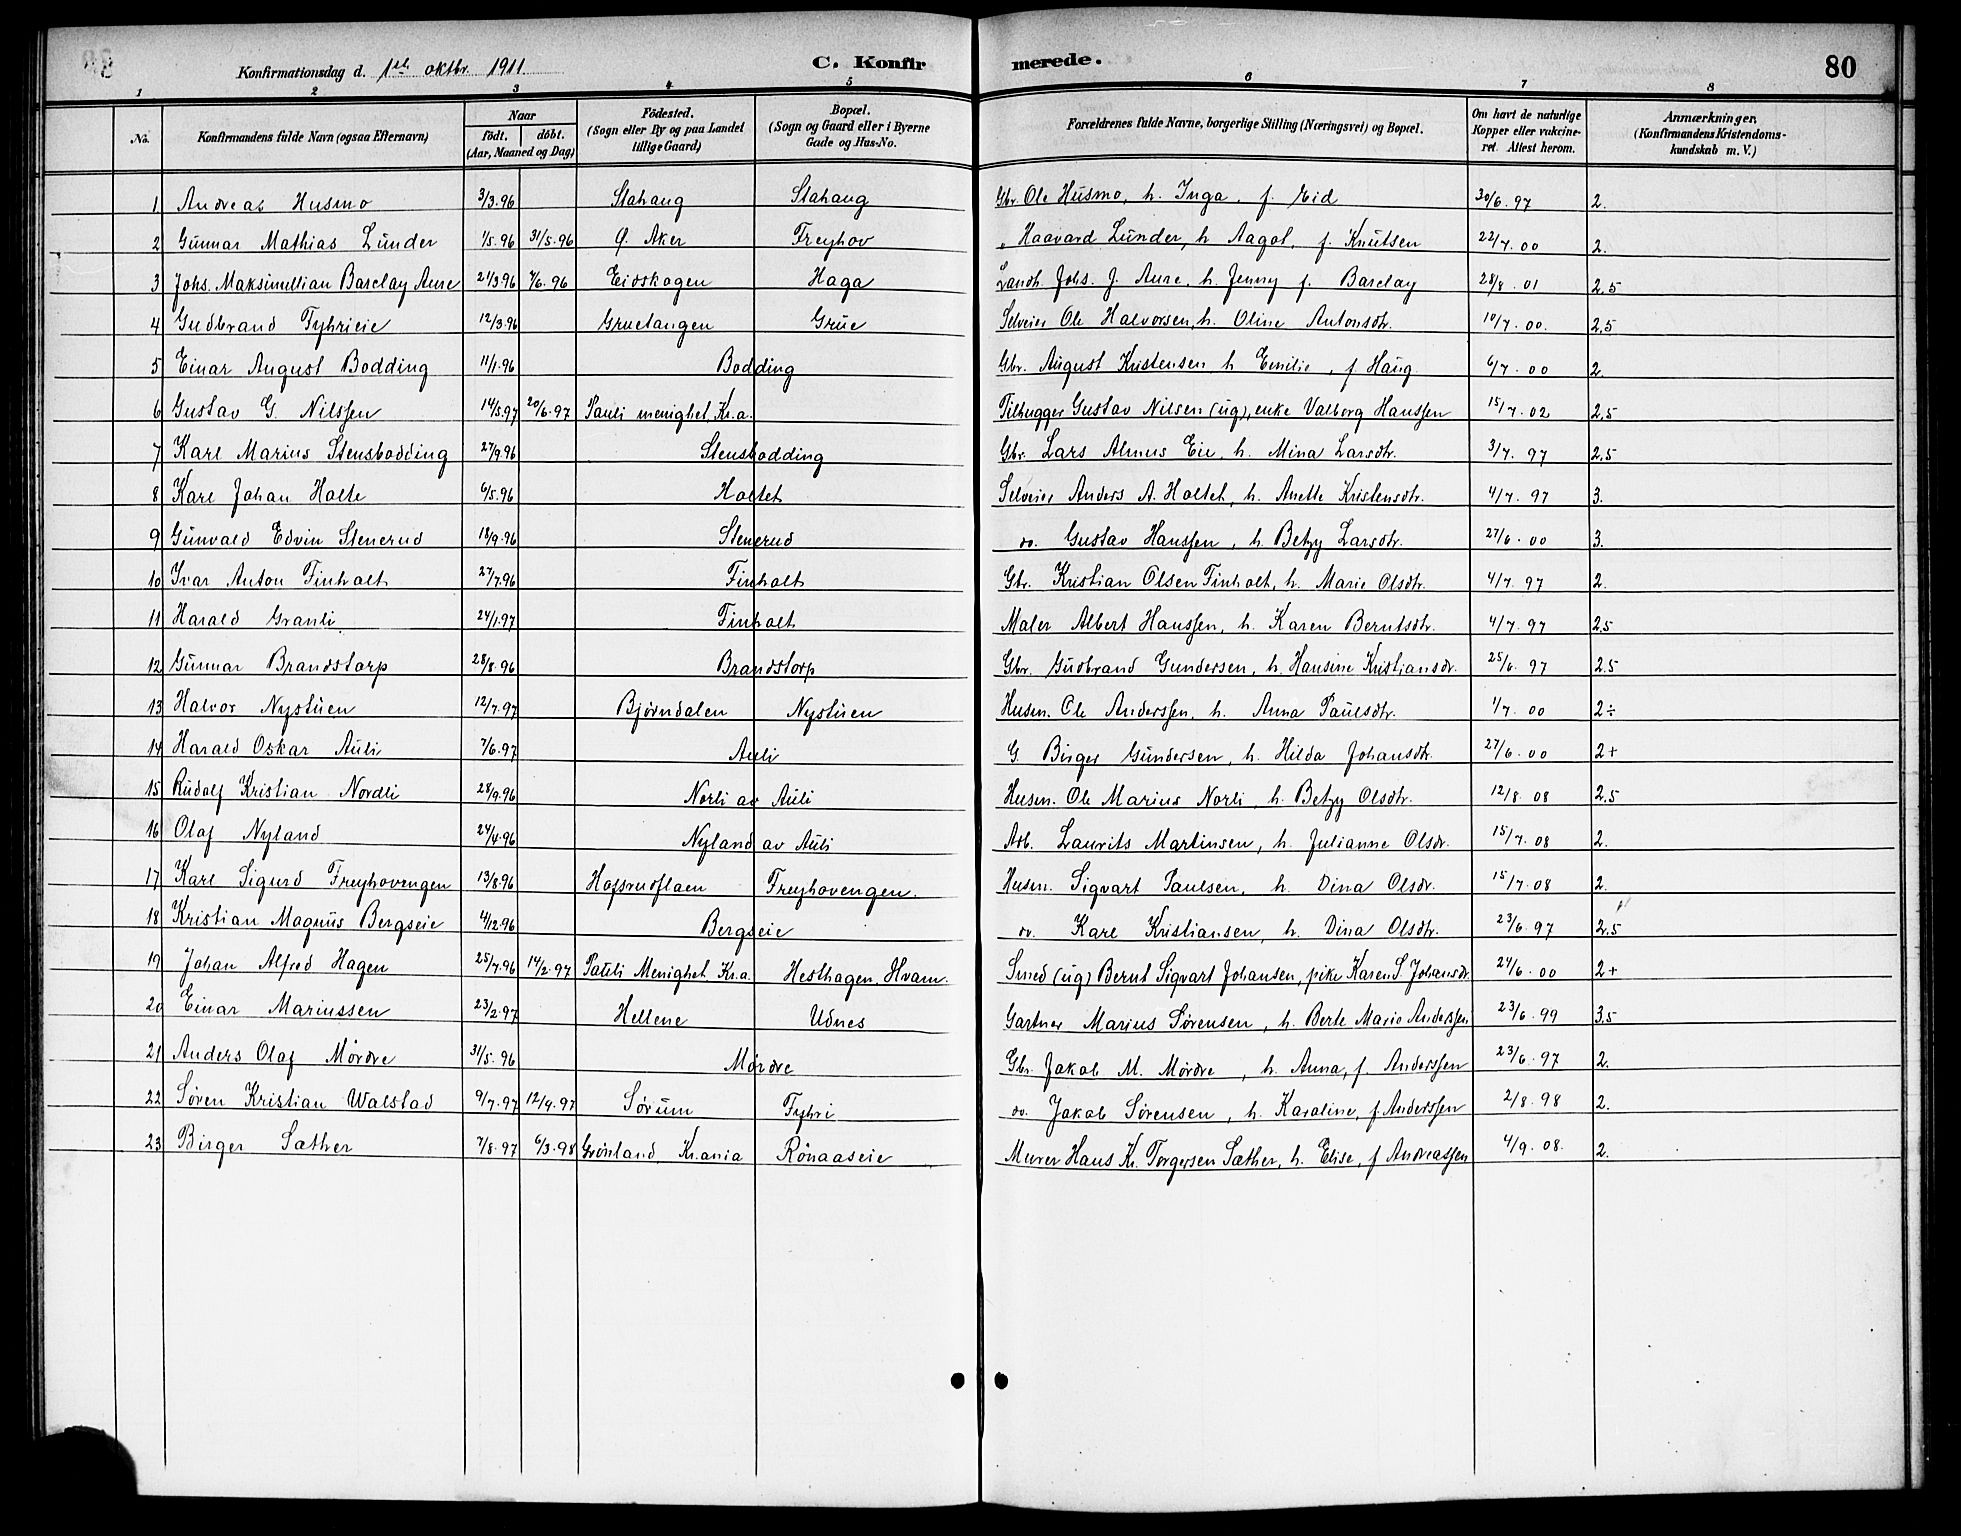 Konfirmationsdag d. 1ste oktbr. 1911. C. Konfirmerede. 80
1 2 3 4 5 6 7 8
No. Konfirmandens fulde Navn (ogsaa Efternavn) Naar født. døbt. (Aar, Maaned og Dag) Fødested. (Sogn eller By og paa Landet tillige Gaard) Bopæl. (Sogn og Gaard eller i Byerne Gade og Hus-No. Forældrenes fulde Navne, borgerlige Stilling (Næringsvei) og Bopæl. Om havt de naturlige Kopper eller vakcineret. Attest herom. Anmærkninger. (Konfirmandens Kristendomskundskab m. V.)
1 Andreas Husmo 3/3.96 Slahaug Slahaug Gbr. Ole Husmo, h. Inga, f. Eid 30/6.97 2.
2 Gunnar Mathias Lunder 1/5.96 31/5.96 Ø. Aker Freyhov " Haavard Lunder, h Aagot, f. Knutsen 22/7.00 2.
3 Johs. Maksimillian Barclay Aure 21/3.96 7/6.96 Eidskogen Haga Landh. Johs. J. Aure, h. Jenny f. Barclay 28/8.01 2.5
4 Gudbrand Tyhrieie 12/3.96 Gruetangen Grue Selveier Ole Halvorsen, h. Oline Antonsdtr. 10/7.00. 2,5
5 Einar August Bodding 11/1.96 Bodding Gbr. August Kristensen h Emilie, f Haug 6/7.00 2.
6 Gustav G. Nilssen 14/5.97 20/6.97 Pauli menighet, Kr.a. Tilhugger Gustav Nilsen (ug), enke Valborg Hanssen 15/7.02 2,5
7 Karl Marius Stensbodding 27/9.96 Stensbodding Gbr. Lars Almus Eie, h. Mina Larsdtr. 3/7.97 2,5
8 Karl Johan Holte 6/5.96 Holtet Selveier Anders A. Holtet, h. Anette Kristensdtr. 4/7.97 3.
9 Gunvald Edvin Stenerud 18/9.96 Stenerud do. Gustav Hanssen, h. Betzy Larsdtr. 27/6.00 3.
10 Ivar Anton Finholt 27/7.96 Finholt Gbr. Kristian Olsen Finholt, h. Marie Olsdtr. 4/7.97 2.
11 Harald Granli 24/1.97 Finholt Maler Albert Hanssen, h. Karen Berntsdtr. 4/7.97 2,5
12 Gunnar Brandstorp 28/8.96 Brandstorp Gbr. Gudbrand Gundersen, h. Hansine Kristiansdr. 25/6.97 2.5
13 Halvor Nystuen 12/7.97 Bjørndalen Nystuen Husm. Ole Anderssen, h. Anna Paulsdtr. 1/7.00 2÷
14 Harald Oskar Auli 7/6.97 Auli G. Birger Gundersen, h. Hilda Johansdtr. 27/6.00 2+
15 Rudolf Kristian Nordli 28/9.96 Norli av Auli Husm. Ole Marius Norli, h. Betzy Olsdtr. 12/8.08 2.5
16 Olaf Nyland 24/4.96 Nyland av Auli Arb. Laurits Martinsen, h. Julianne Olsdr. 15/7.08 2.
17 Karl Sigurd Freyhovengen 13/8.96 Hofsrudflaen Freyhovengen. Husm. Sigvart Paulsen, h. Dina Olsdr. 15/7.08 2.
18 Kristian Magnus Bergseie 4/12.96 Bergseie do. Karl Kristiansen, h. Dina Olsdtr. 23/6.97 2.5
19 Johan Alfred Hagen 25/7.96 14/2.97 Pauli Menighet Kr.a. Hesthagen, Hvam. Smed (ug) Bernt Sigvart Johansen, pike Karen S. Johansdr. 24/6.00 2+
20 Einar Mariussen 23/2.97 Hellene Udnes Gartner Marius Sørensen, h. Berte Marie Anderssen 23/6.99 3,5
21 Anders Olaf Mørdre 31/5.96 Mørdre Gbr. Jakob M. Mørdre, h. Anna, f. Anderssen 23/6.97 2.
22 Søren Kristian Walstad 9/7.97 12/9.97 Sørum Tyhri do. Jakob Sørensen, h. Karoline, f. Anderssen 2/8.98 2.
23 Birger Sæther 7/8.97 6/3.98 Grønland, Kr.ania Rønaaseie Murer Hans Kr. Torgersen Sæther, h. Elise, f Andreassen 4/9.08. 2.